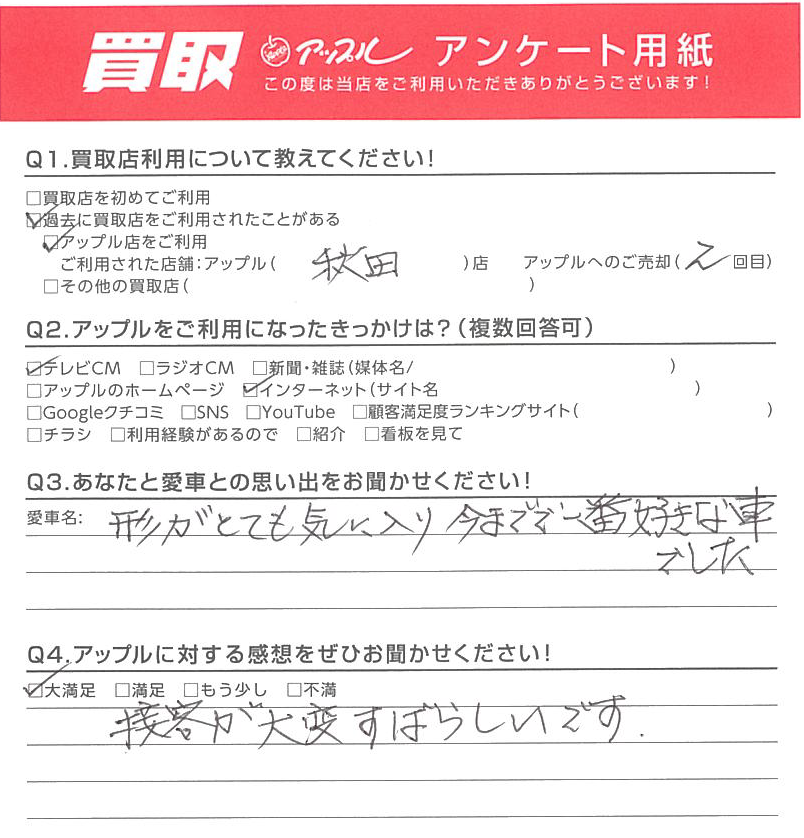 買取 アップル アンケート用紙
この度は当店をご利用いただきありがとうございます!
Q1.買取店利用について教えてください!
□買取店を初めてご利用
☑過去に買取店をご利用されたことがある
☑アップル店をご利用
ご利用された店舗:アップル( 秋田 )店 アップルへのご売却( 2 回目)
□その他の買取店( )
Q2.アップルをご利用になったきっかけは?(複数回答可)
☑テレビCM □ラジオCM □新聞・雑誌(媒体名/ )
□アップルのホームページ ☑インターネット(サイト名 )
□Googleクチコミ □SNS □YouTube □顧客満足度ランキングサイト( )
□チラシ □利用経験があるので □紹介 □看板を見て
Q3.あなたと愛車との思い出をお聞かせください!
愛車名: 形がとても気に入り 今までで一番好きな車
でした
Q4.アップルに対する感想をぜひお聞かせください!
☑大満足 □満足 □もう少し □不満
接客が大変すばらしいです.